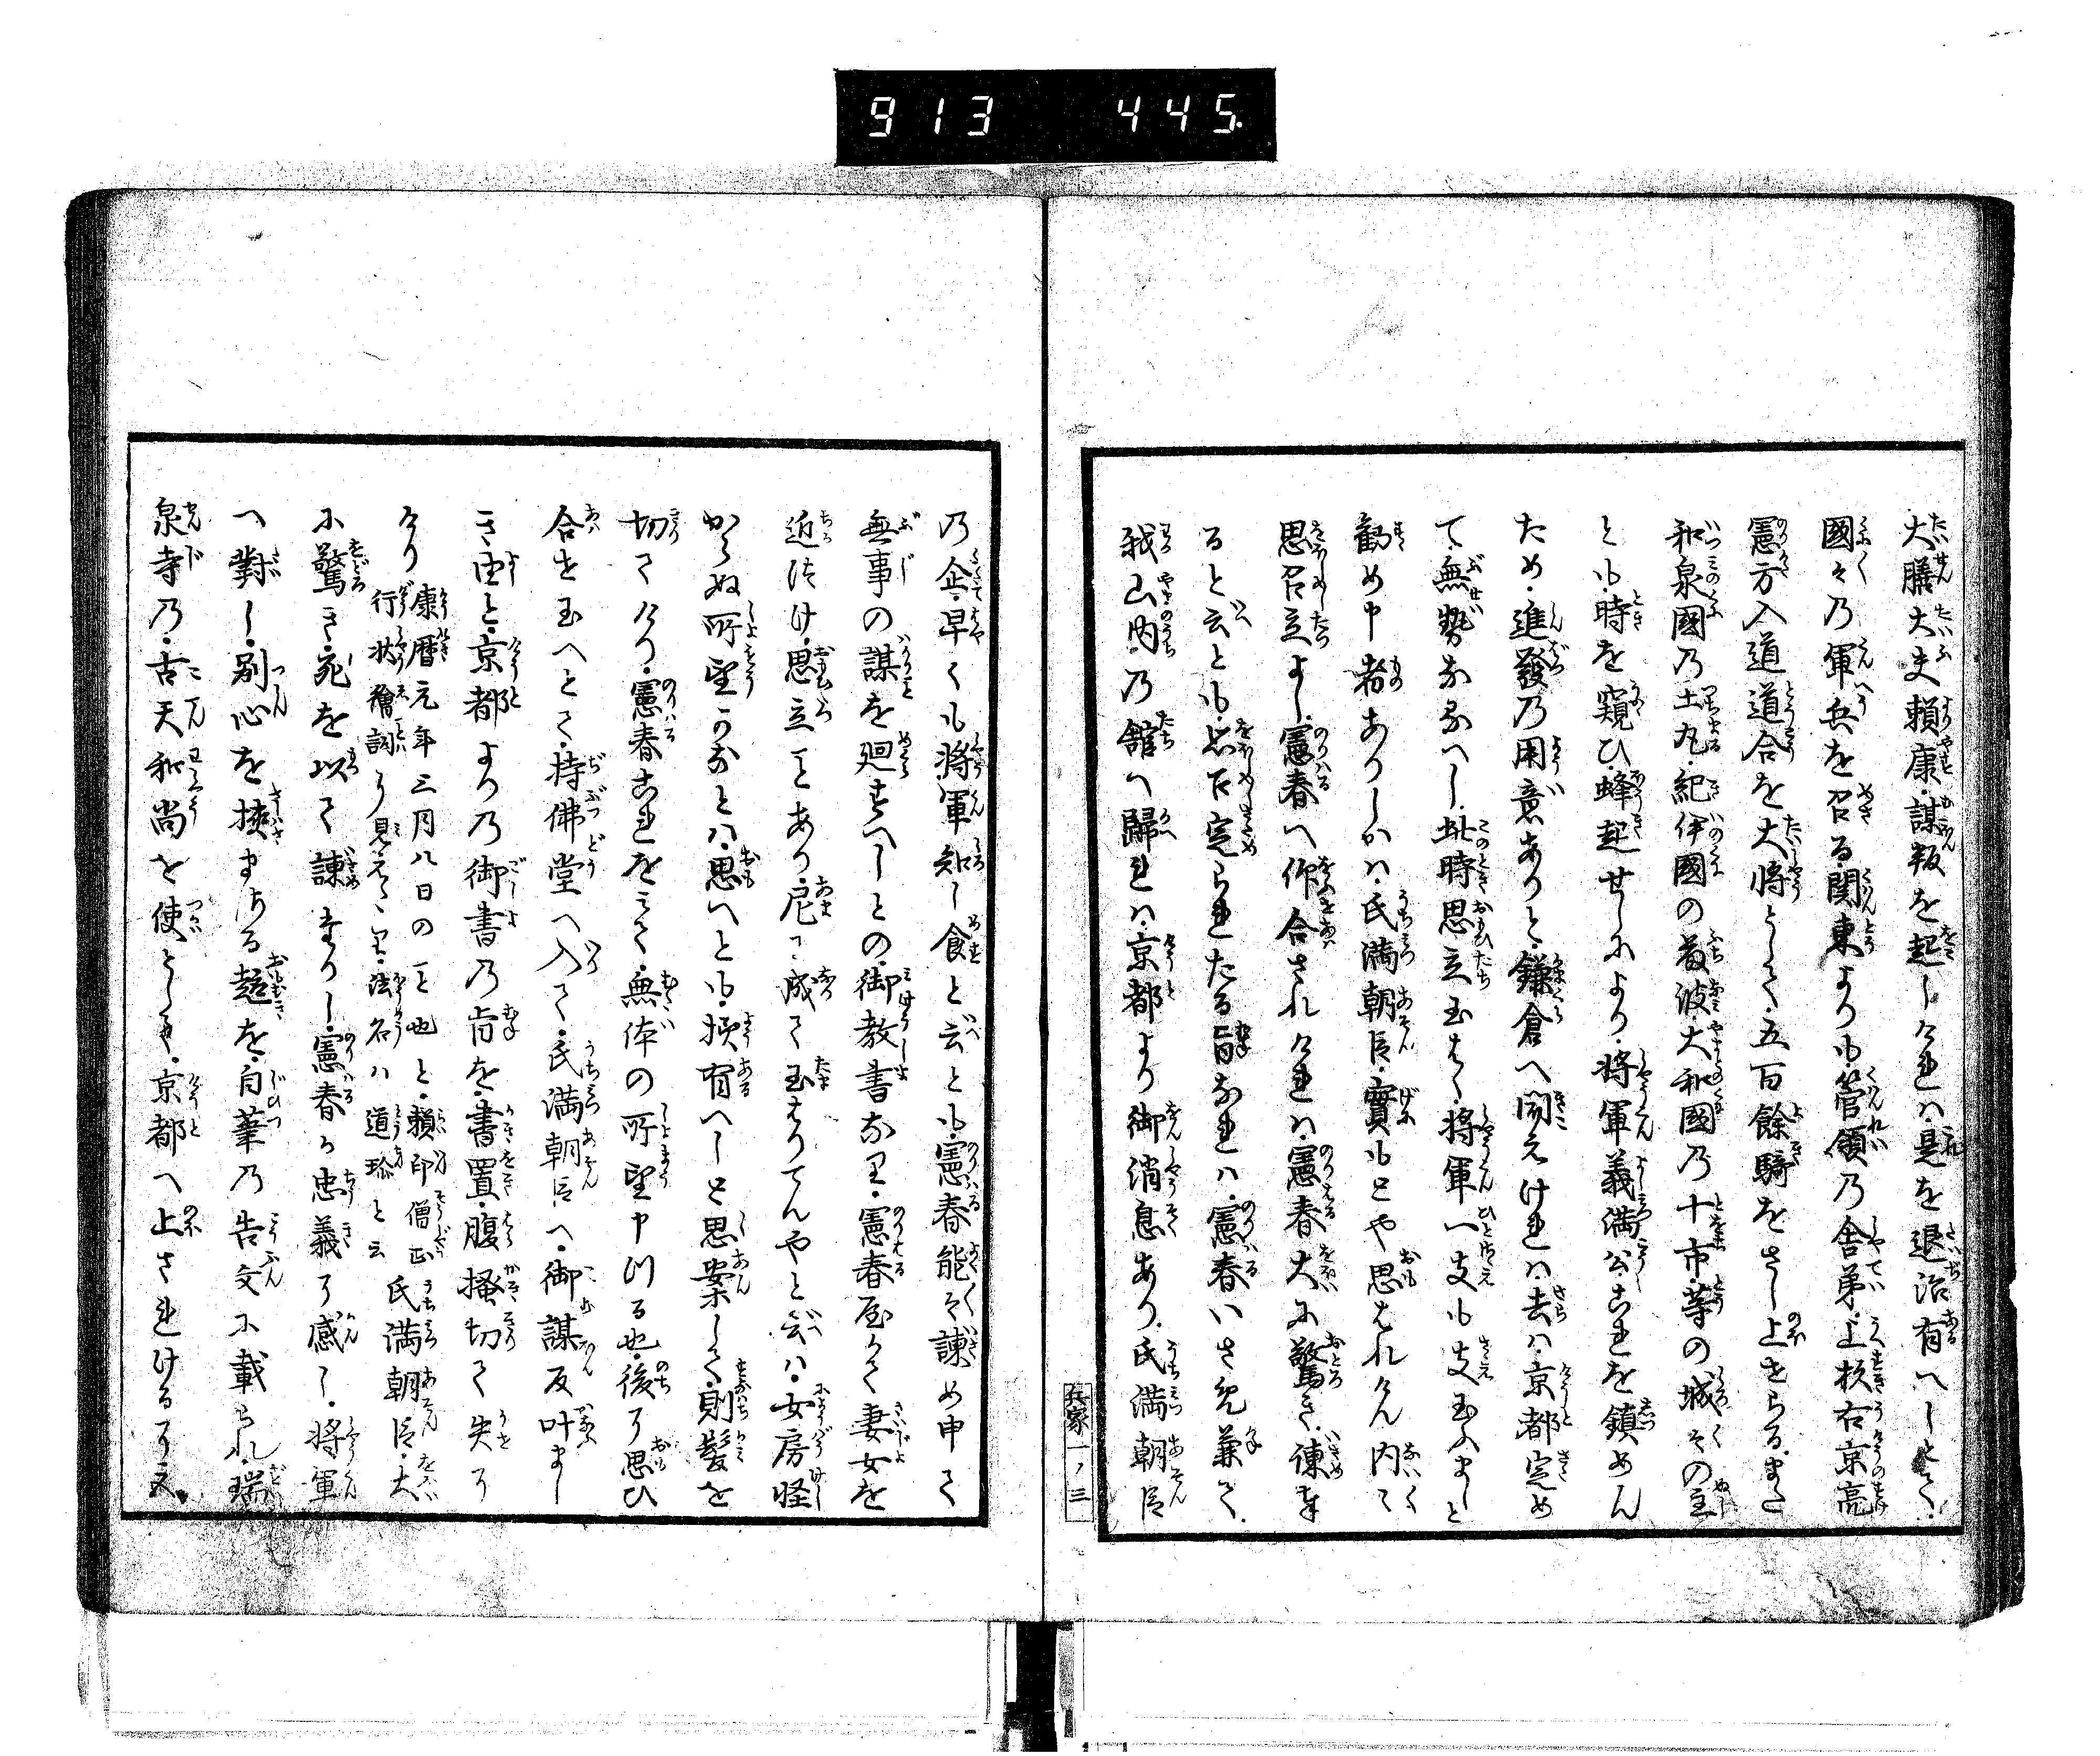 913 445.
大膳大夫頼康・謀叛を起しけれは是を退治有へしとて・
國々乃軍兵を召る関東よりも・管領乃舎弟・上杦右京亮
憲方入道道合を大将として・五百餘騎をさし上せらる・また
和泉國乃土丸・紀伊國の藤波大和國乃十市・等の城その主
とも・時を窺ひ・蜂起せしにより・将軍義満公・これを鎮めん
ため・進發乃用意ありと・鎌倉へ聞えけれは・去は・京都定め
て・無勢なるへし・此時思立玉はく・将軍一支も支玉ふましと
勧め申者ありしかは・氏満朝臣・實もとや思はれけん内々
思召立よし・憲春へ仰合されけれは・憲春大に驚き・諌め
ると云とも・思召定られたる旨なれは・憲春いさめ兼て・
我山内乃舘へ歸れは・京都より御消息あり・氏満朝臣
兵家一ノ三
乃企・早くも将軍知し食と云とも・憲春能々諌め申て
無事の謀を廻すへしとの・御教書なり・憲春屋かて妻女を
近つけ・思立ことあり・尼に成て玉はりてんやと云は・女房怪
からぬ所望かなとは・思へとも・様有へしと思案して・則髪を
切てけり・憲春これをみて・無体の所望申つる也・後に思ひ
合せ玉へとて・持佛堂へ入て・氏満朝臣へ・御謀反叶まし
き由と・京都よりの御書乃旨を・書置・腹掻切て失に
けり
康暦元年三月八日のこと也と・頼印僧正
行状繪詞に見えたり・法名は道珎と云
氏満朝臣・大
に驚き・死を以て諌たりし・憲春か忠義に感し・将軍
へ對し・別心を挟まさる趣を・自筆乃告文に載られ・瑞
泉寺乃・古天和尚を使として・京都へ上されけるに又